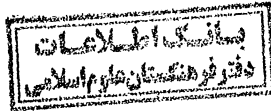 بانک اطلاعات
دفتر فرهنگستان علوم اسلامی